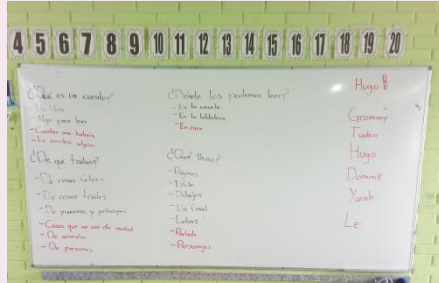 4 5 6 7 8 9 10 11 12 13 14 15 16 17 18 19 20
¿Qué es un cuento?
- Un libro
- Algo para leer
- Cuentan una historia
- Lo escribió alguien
¿De qué tratan?
- De cosas felices
- De cosas tristes
- De princesas y príncipes
- Cosas que no son de verdad
- De animales
- De personas
¿Dónde los podemos leer?
- En la escuela
- En la biblioteca
- En casa
¿Qué llevan?
- Páginas
- Título
- Dibujos
- Un final
- Letras
- Portada
- Personajes
Hugo
Tadeo
Hugo
Dominik
Yarah
Le